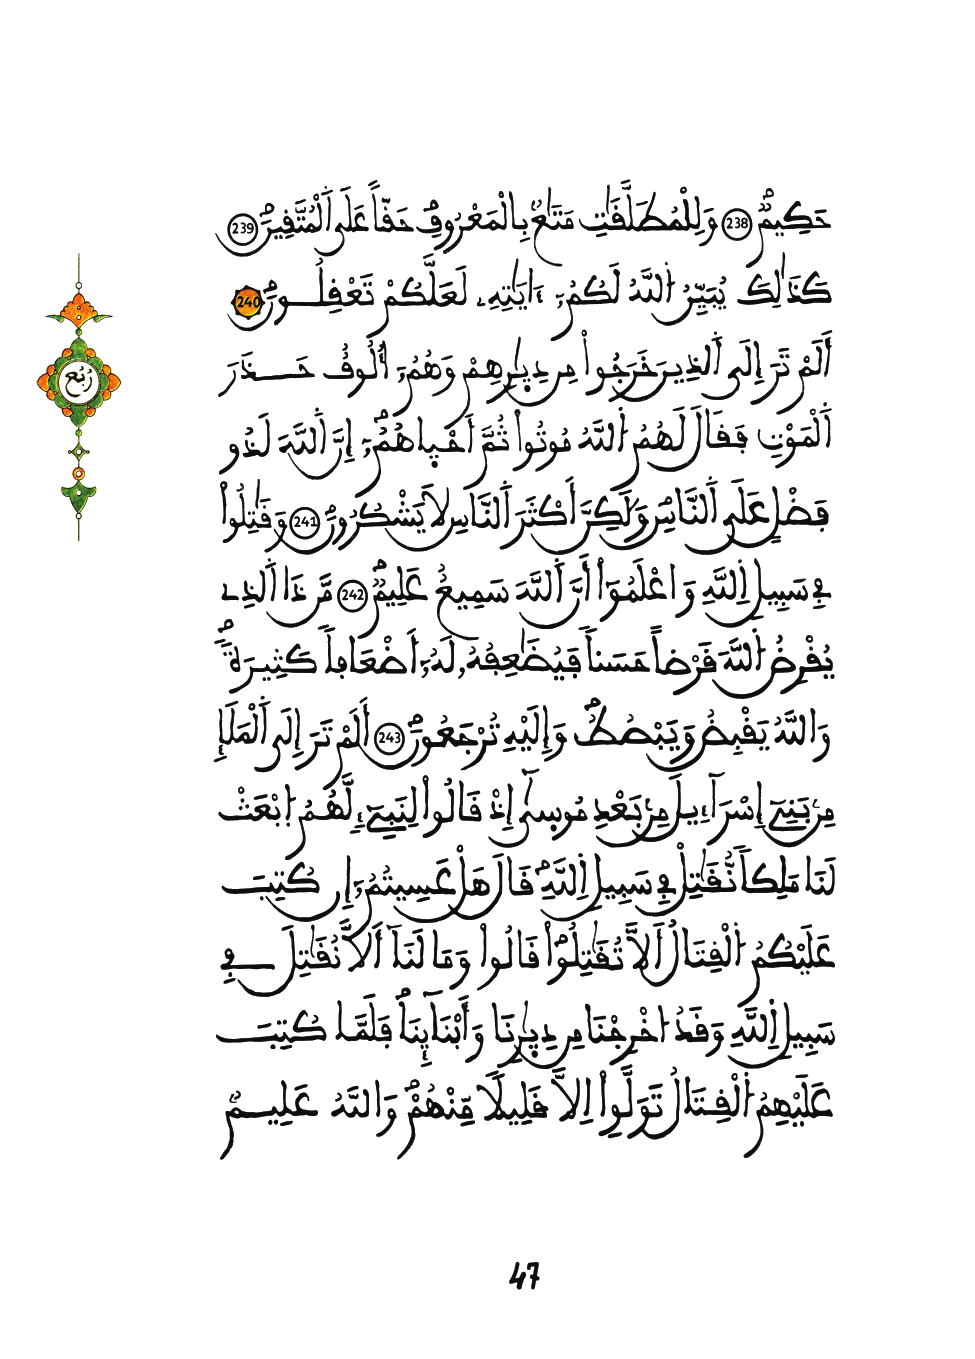 حَكِيمٌ 238 وَلِلْمُطَلَّقَٰتِ مَتَٰعٌۢ بِالْمَعْرُوفِ حَقّاً عَلَى اَ۬لْمُتَّقِينَ 239
كَذَٰلِكَ يُبَيِّنُ اُ۬للَّهُ لَكُمُۥٓ ءَايَٰتِهِۦ لَعَلَّكُمْ تَعْقِلُونَ 240
أَلَمْ تَرَ إِلَى اَ۬لذِينَ خَرَجُواْ مِن دِيٰ۪رِهِمْ وَهُمُۥٓ أُلُوفٌ حَذَرَ
اَ۬لْمَوْتِ فَقَالَ لَهُمُ اُ۬للَّهُ مُوتُواْ ثُمَّ أَحْي۪اهُمُۥٓ إِنَّ اَ۬للَّهَ لَذُو
فَضْلٍ عَلَى اَ۬لنَّاسِ وَلَٰكِنَّ أَكْثَرَ اَ۬لنَّاسِ لَا يَشْكُرُونَ 241 وَقَٰتِلُواْ
فِے سَبِيلِ اِ۬للَّهِ وَاعْلَمُوٓاْ أَنَّ اَ۬للَّهَ سَمِيعٌ عَلِيمٌ 242 مَّن ذَا اَ۬لذِے
يُقْرِضُ اُ۬للَّهَ قَرْضاً حَسَناً فَيُضَٰعِفُهُۥ لَهُۥٓ أَضْعَافاً كَثِيرَةً
وَاللَّهُ يَقْبِضُ وَيَبْصُۜطُ وَإِلَيْهِ تُرْجَعُونَ 243 أَلَمْ تَرَ إِلَى اَ۬لْمَلَإِ
مِنۢ بَنِےٓ إِسْرَآءِيلَ مِنۢ بَعْدِ مُوس۪يٰٓ إِذْ قَالُواْ لِنَبِےٓءٍ لَّهُمُ اُ۪بْعَثْ
لَنَا مَلِكاً نُّقَٰتِلْ فِے سَبِيلِ اِ۬للَّهِ قَالَ هَلْ عَسِيتُمُۥٓ إِن كُتِبَ
عَلَيْكُمُ اُ۬لْقِتَالُ أَلَّا تُقَٰتِلُواْ قَالُواْ وَمَا لَنَآ أَلَّا نُقَٰتِلَ فِے
سَبِيلِ اِ۬للَّهِ وَقَدُ ا۟خْرِجْنَا مِن دِيٰ۪رِنَا وَأَبْنَآئِنَا فَلَمَّا كُتِبَ
عَلَيْهِمُ اُ۬لْقِتَالُ تَوَلَّوِاْ اِلَّا قَلِيلًا مِّنْهُمْ وَاللَّهُ عَلِيمٌۢ
رُبُع
47